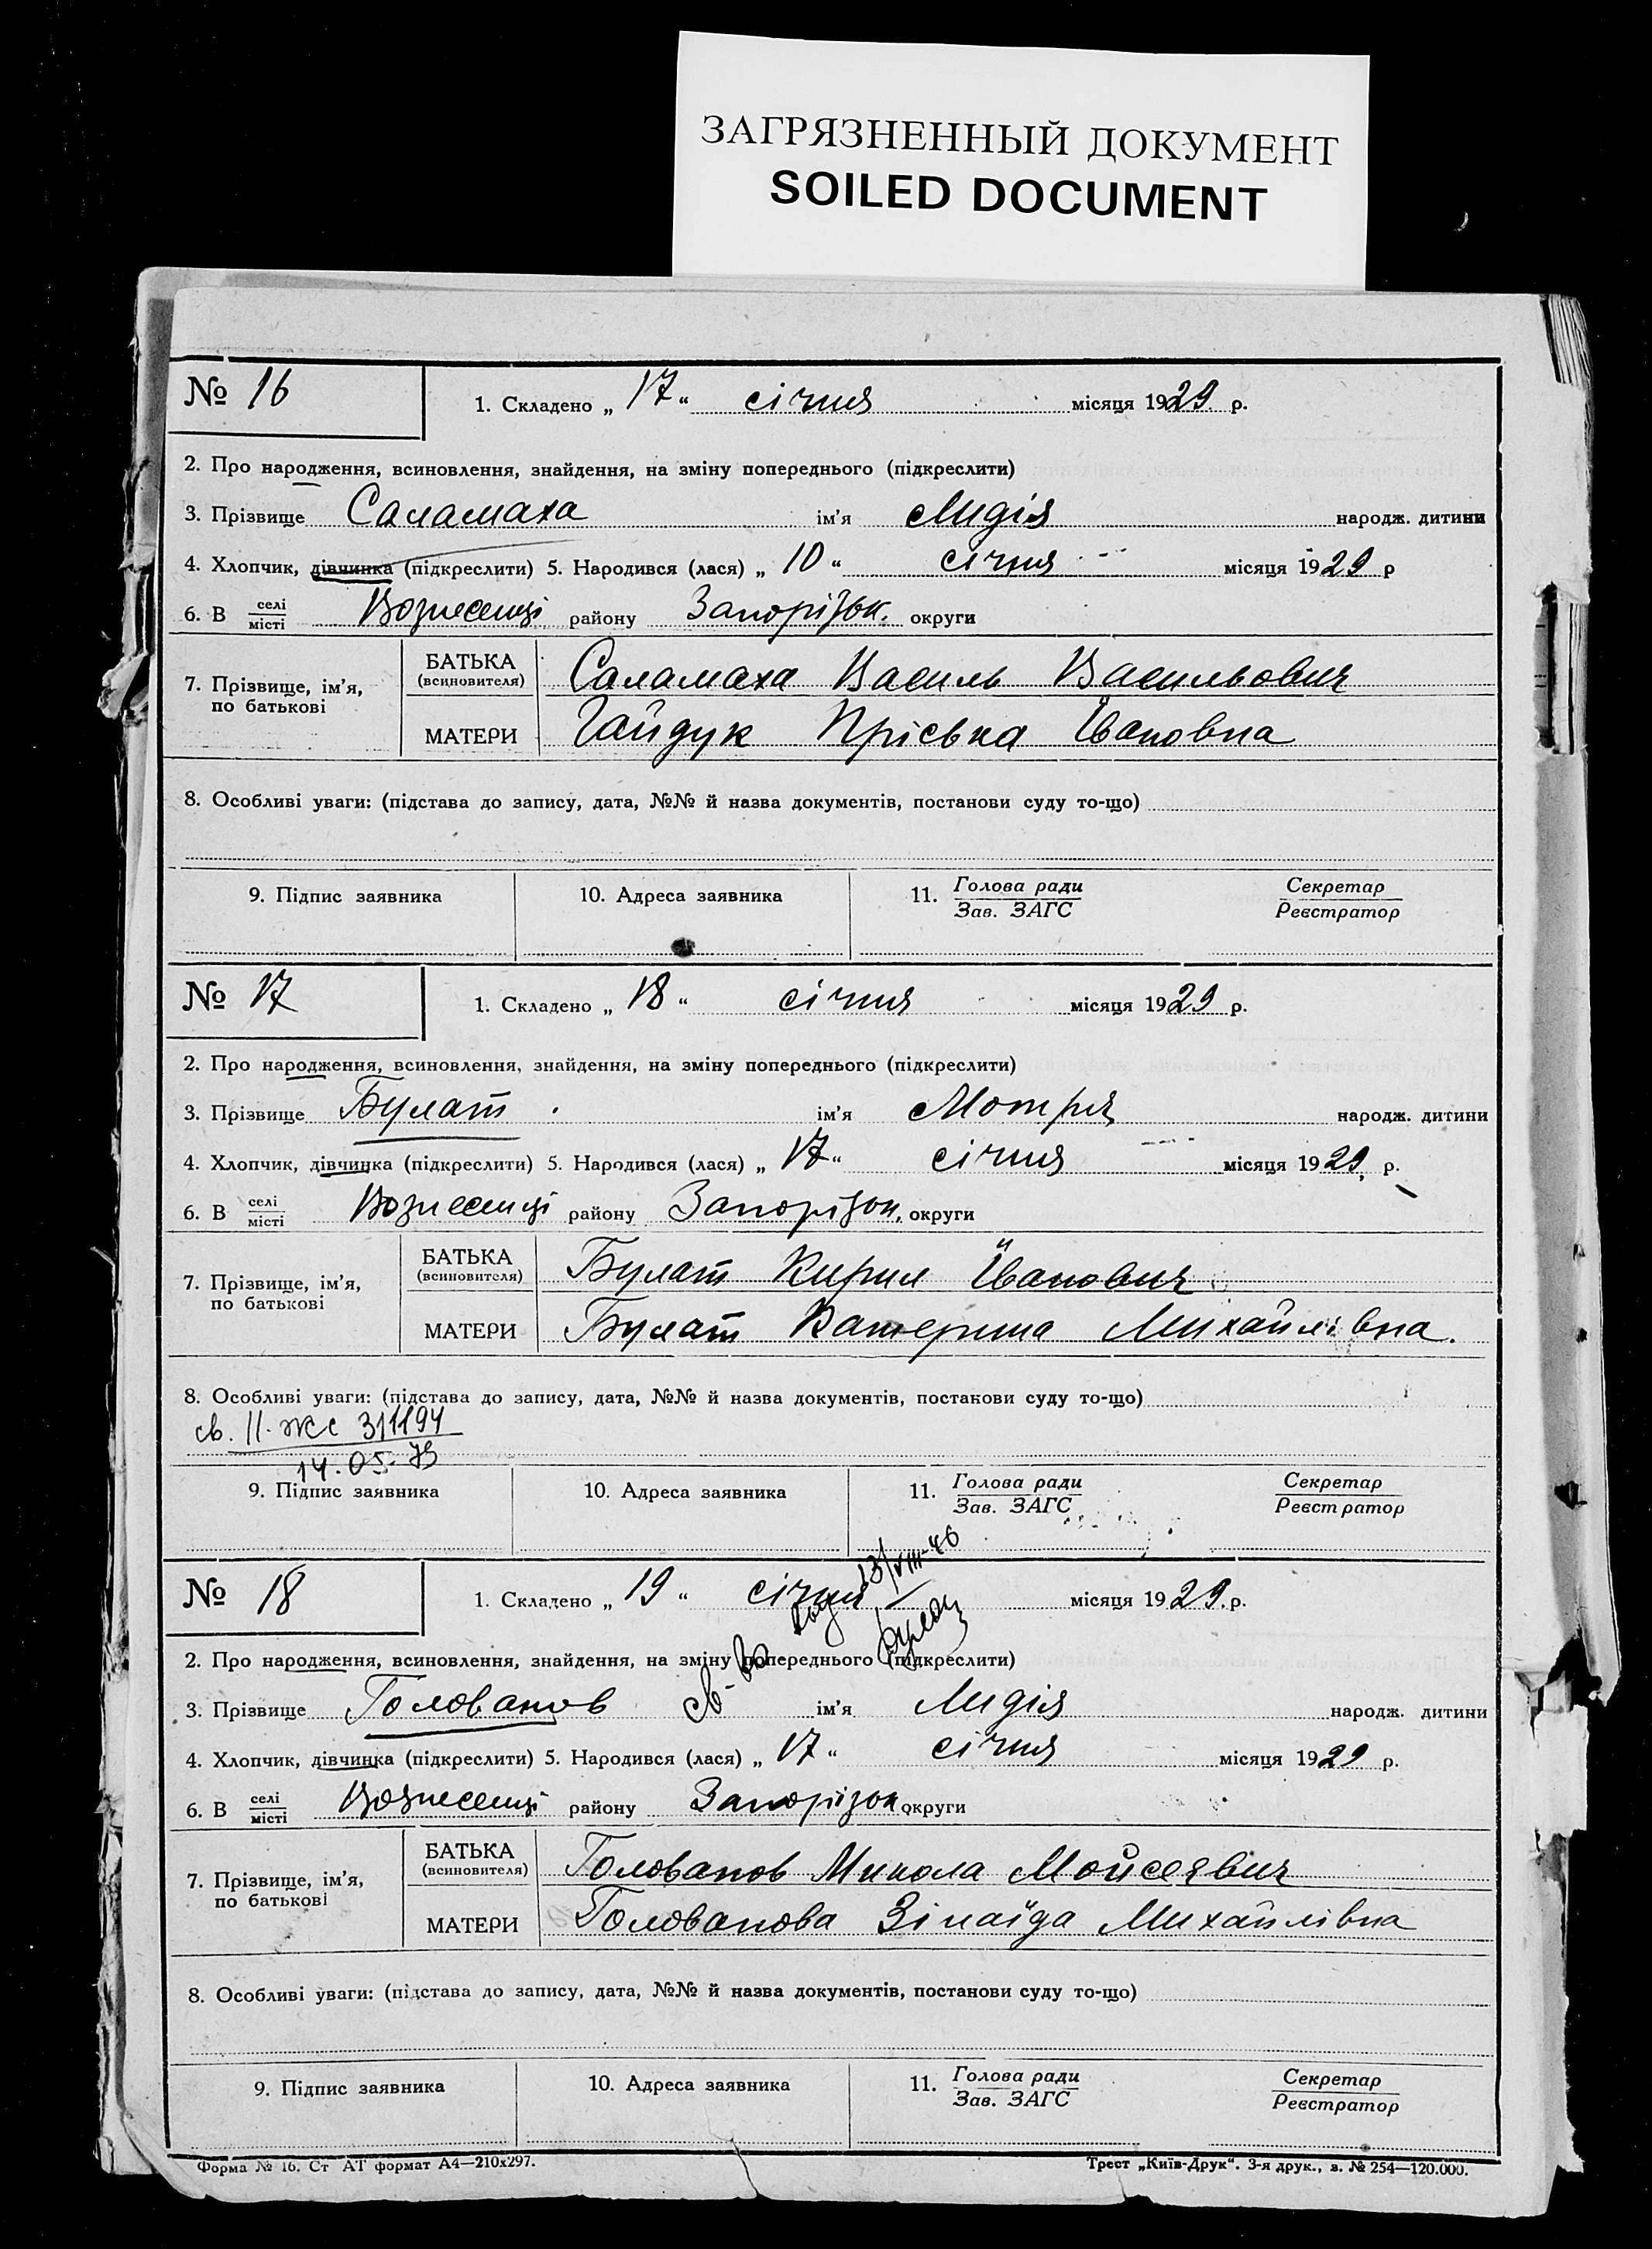 ЗАГРЯЗНЕННЫЙ ДОКУМЕНТ
SOILED DOCUMENT
№ 16
1. Складено „ 17 “ січня місяця 1929 р.
2. Про народження, всиновлення, знайдення, на зміну попереднього (підкреслити)
3. Прізвище Саламаха ім’я Лидія народж. дитини
4. Хлопчик, дівчинка (підкреслити) 5. Народився (лася) „ 10 “ січня місяця 1929 р
6. В селі місті Вознесенці району Запорізьк. округи
7. Прізвище, ім’я, по батькові
БАТЬКА (всиновителя) Саламаха Василь Васильович
МАТЕРИ Гайдук Пріська Івановна
8. Особливі уваги: (підстава до запису, дата, №№ й назва документів, постанови суду то-що)
9. Підпис заявника 10. Адреса заявника 11. Голова ради Секретар
Зав. ЗАГС Реєстратор
№ 17
1. Складено „ 18 “ січня місяця 1929 р.
2. Про народження, всиновлення, знайдення, на зміну попереднього (підкреслити)
3. Прізвище Булат ім’я Мотря народж. дитини
4. Хлопчик, дівчинка (підкреслити) 5. Народився (лася) „ 17 “ січня місяця 1929 р.
6. В селі місті Вознесенці району Запорізьк. округи
7. Прізвище, ім’я, по батькові
БАТЬКА (всиновителя) Булат Кирил Іванович
МАТЕРИ Булат Катерина Михайлівна.
8. Особливі уваги: (підстава до запису, дата, №№ й назва документів, постанови суду то-що)
св. II-ЖС 311194
14.05.79
9. Підпис заявника 10. Адреса заявника 11. Голова ради Секретар
Зав. ЗАГС Реєстратор
13/VIII-46
№ 18
1. Складено „ 19 “ січня місяця 1929 р.
2. Про народження, всиновлення, знайдення, на зміну попереднього (підкреслити)
3. Прізвище Голованов ім’я Лидія народж. дитини
4. Хлопчик, дівчинка (підкреслити) 5. Народився (лася) „ 17 “ січня місяця 1929 р.
6. В селі місті Вознесенці району Запорізьк округи
7. Прізвище, ім’я, по батькові
БАТЬКА (всиновителя) Голованов Микола Мойсеєвич
МАТЕРИ Голованова Зінаїда Михайлівна
8. Особливі уваги: (підстава до запису, дата, №№ й назва документів, постанови суду то-що)
9. Підпис заявника 10. Адреса заявника 11. Голова ради Секретар
Зав. ЗАГС Реєстратор
Форма № 16. Ст АТ формат А4—210x297. Трест „Київ-Друк“. 3-я друк., з. № 254—120.000.